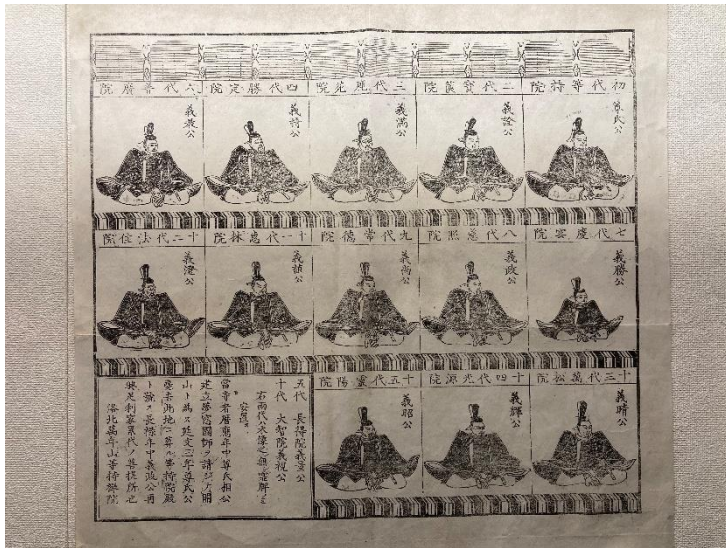 初代等持院
尊氏公
二代寳篋院
義詮公
三代鹿苑院
義満公
四代勝定院
義持公
六代普廣院
義教公
七代慶雲院
義勝公
八代慈照院
義政公
九代常徳院
義尚公
十一代恵林院
義稙公
十二代法住院
義澄公
十三代萬松院
義晴公
十四代光源院
義輝公
十五代靈陽院
義昭公
五代 長得院義量公
十代 大智院義視公
右両代公木像之無霊牌ヲ
安置ス
當寺者暦應年中尊氏相公
建立夢窓國師ヲ請シテ開
山ト為ス延文三年尊氏公
薨去此地ニ葬ル等持院殿
ト號ス長禄年中義政公再
興足利家累代ノ菩提所也
洛北萬年山等持禅院